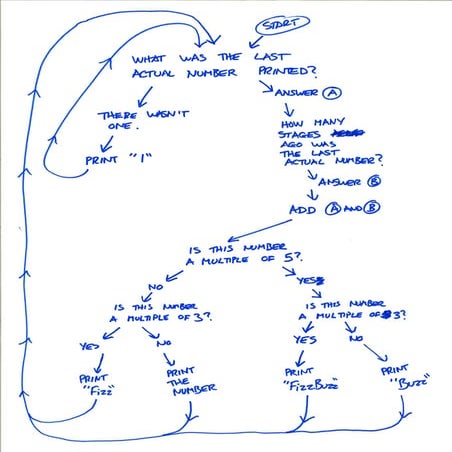 START
WHAT WAS THE LAST
ACTUAL NUMBER PRINTED?
THERE WASN'T
ONE.
PRINT "1"
ANSWER A
HOW MANY
STAGES
AGO WAS
THE LAST
ACTUAL NUMBER?
ANSWER B
ADD A AND B
IS THIS NUMBER
A MULTIPLE OF 5?
NO
YES
IS THIS NUMBER
A MULTIPLE OF 3?
IS THIS NUMBER
A MULTIPLE OF 3?
YES
NO
YES
NO
PRINT
"Fizz"
PRINT
THE
NUMBER
PRINT
"FizzBuzz"
PRINT
"Buzz"